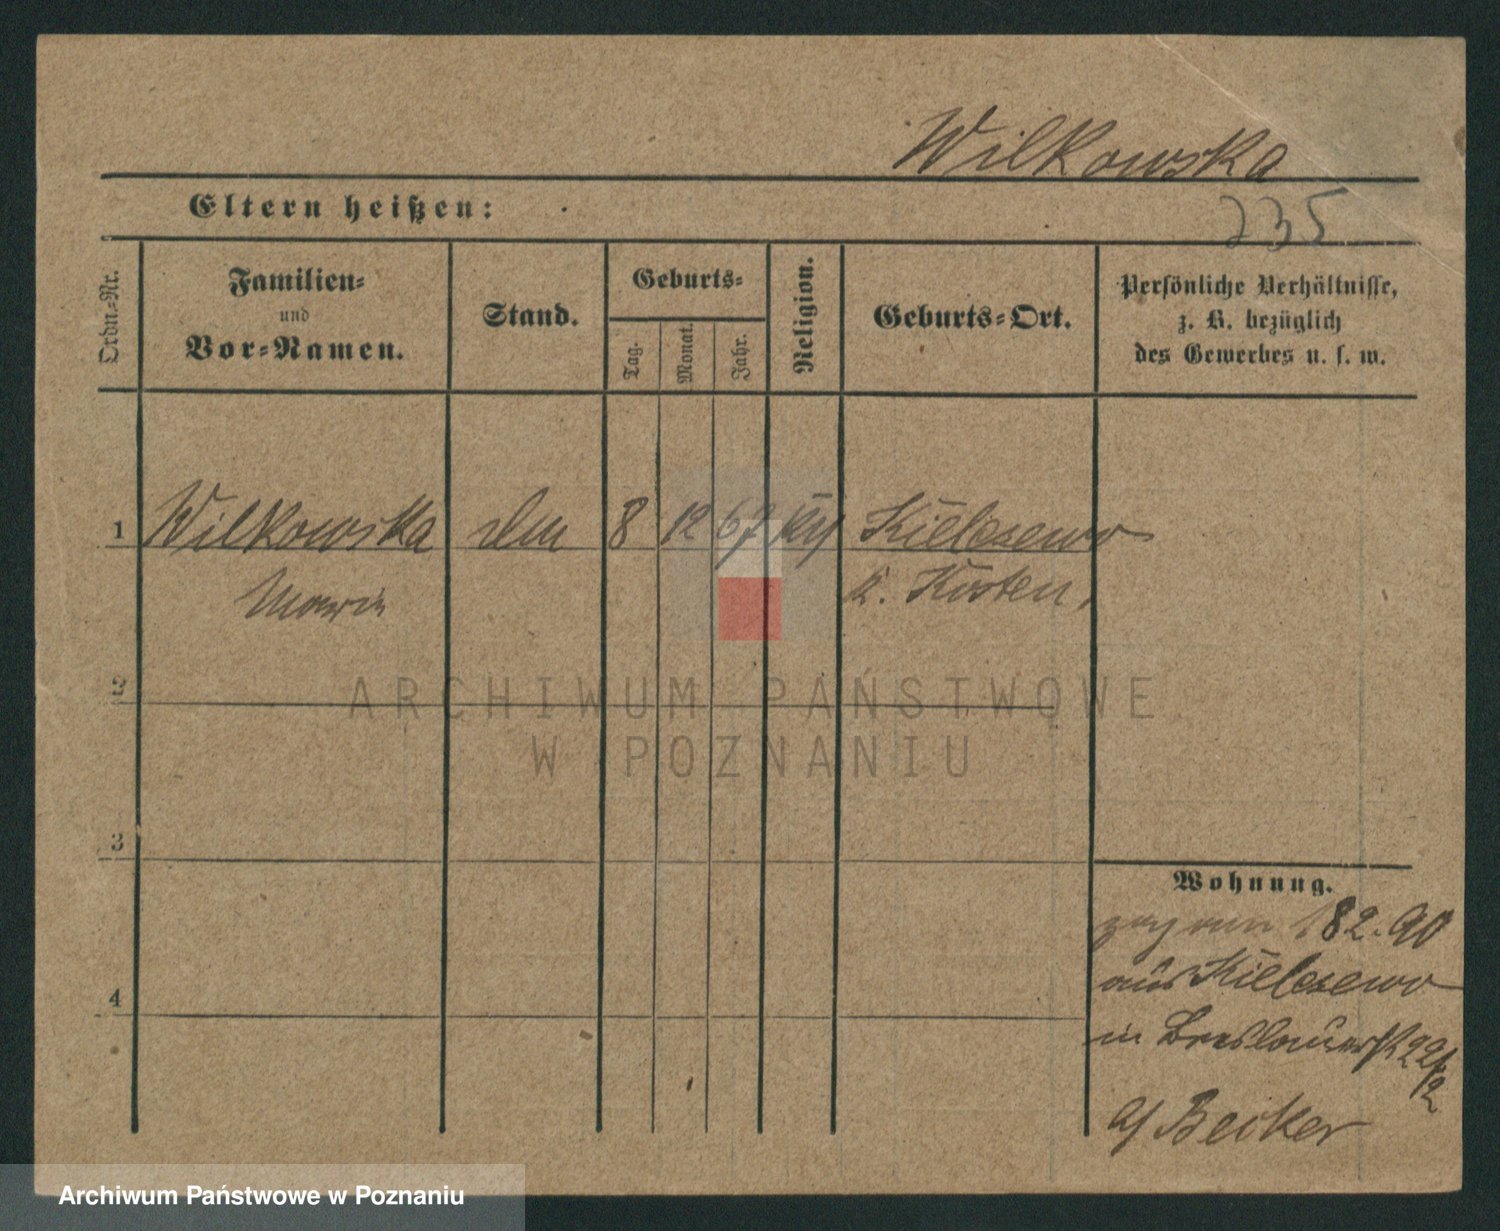 Wilkowska
Eltern heißen:
235
Ordn.-Nr.
Familien-
und
Vor-Namen.
Stand.
Geburts-
Tag.
Monat.
Jahr.
Religion.
Geburts-Ort.
Persönliche Verhältnisse,
z. B. bezüglich
des Gewerbes u. s. w.
1 Wilkowska 8 12 67 Kielczewo
Marie K. Kosten.
2
ARCHIWUM PAŃSTWOWE
W POZNANIU
3
Wohnung.
82.90
aus Kielczewo
4
in Breslauerst 22
12
Becker
Archiwum Państwowe w Poznaniu